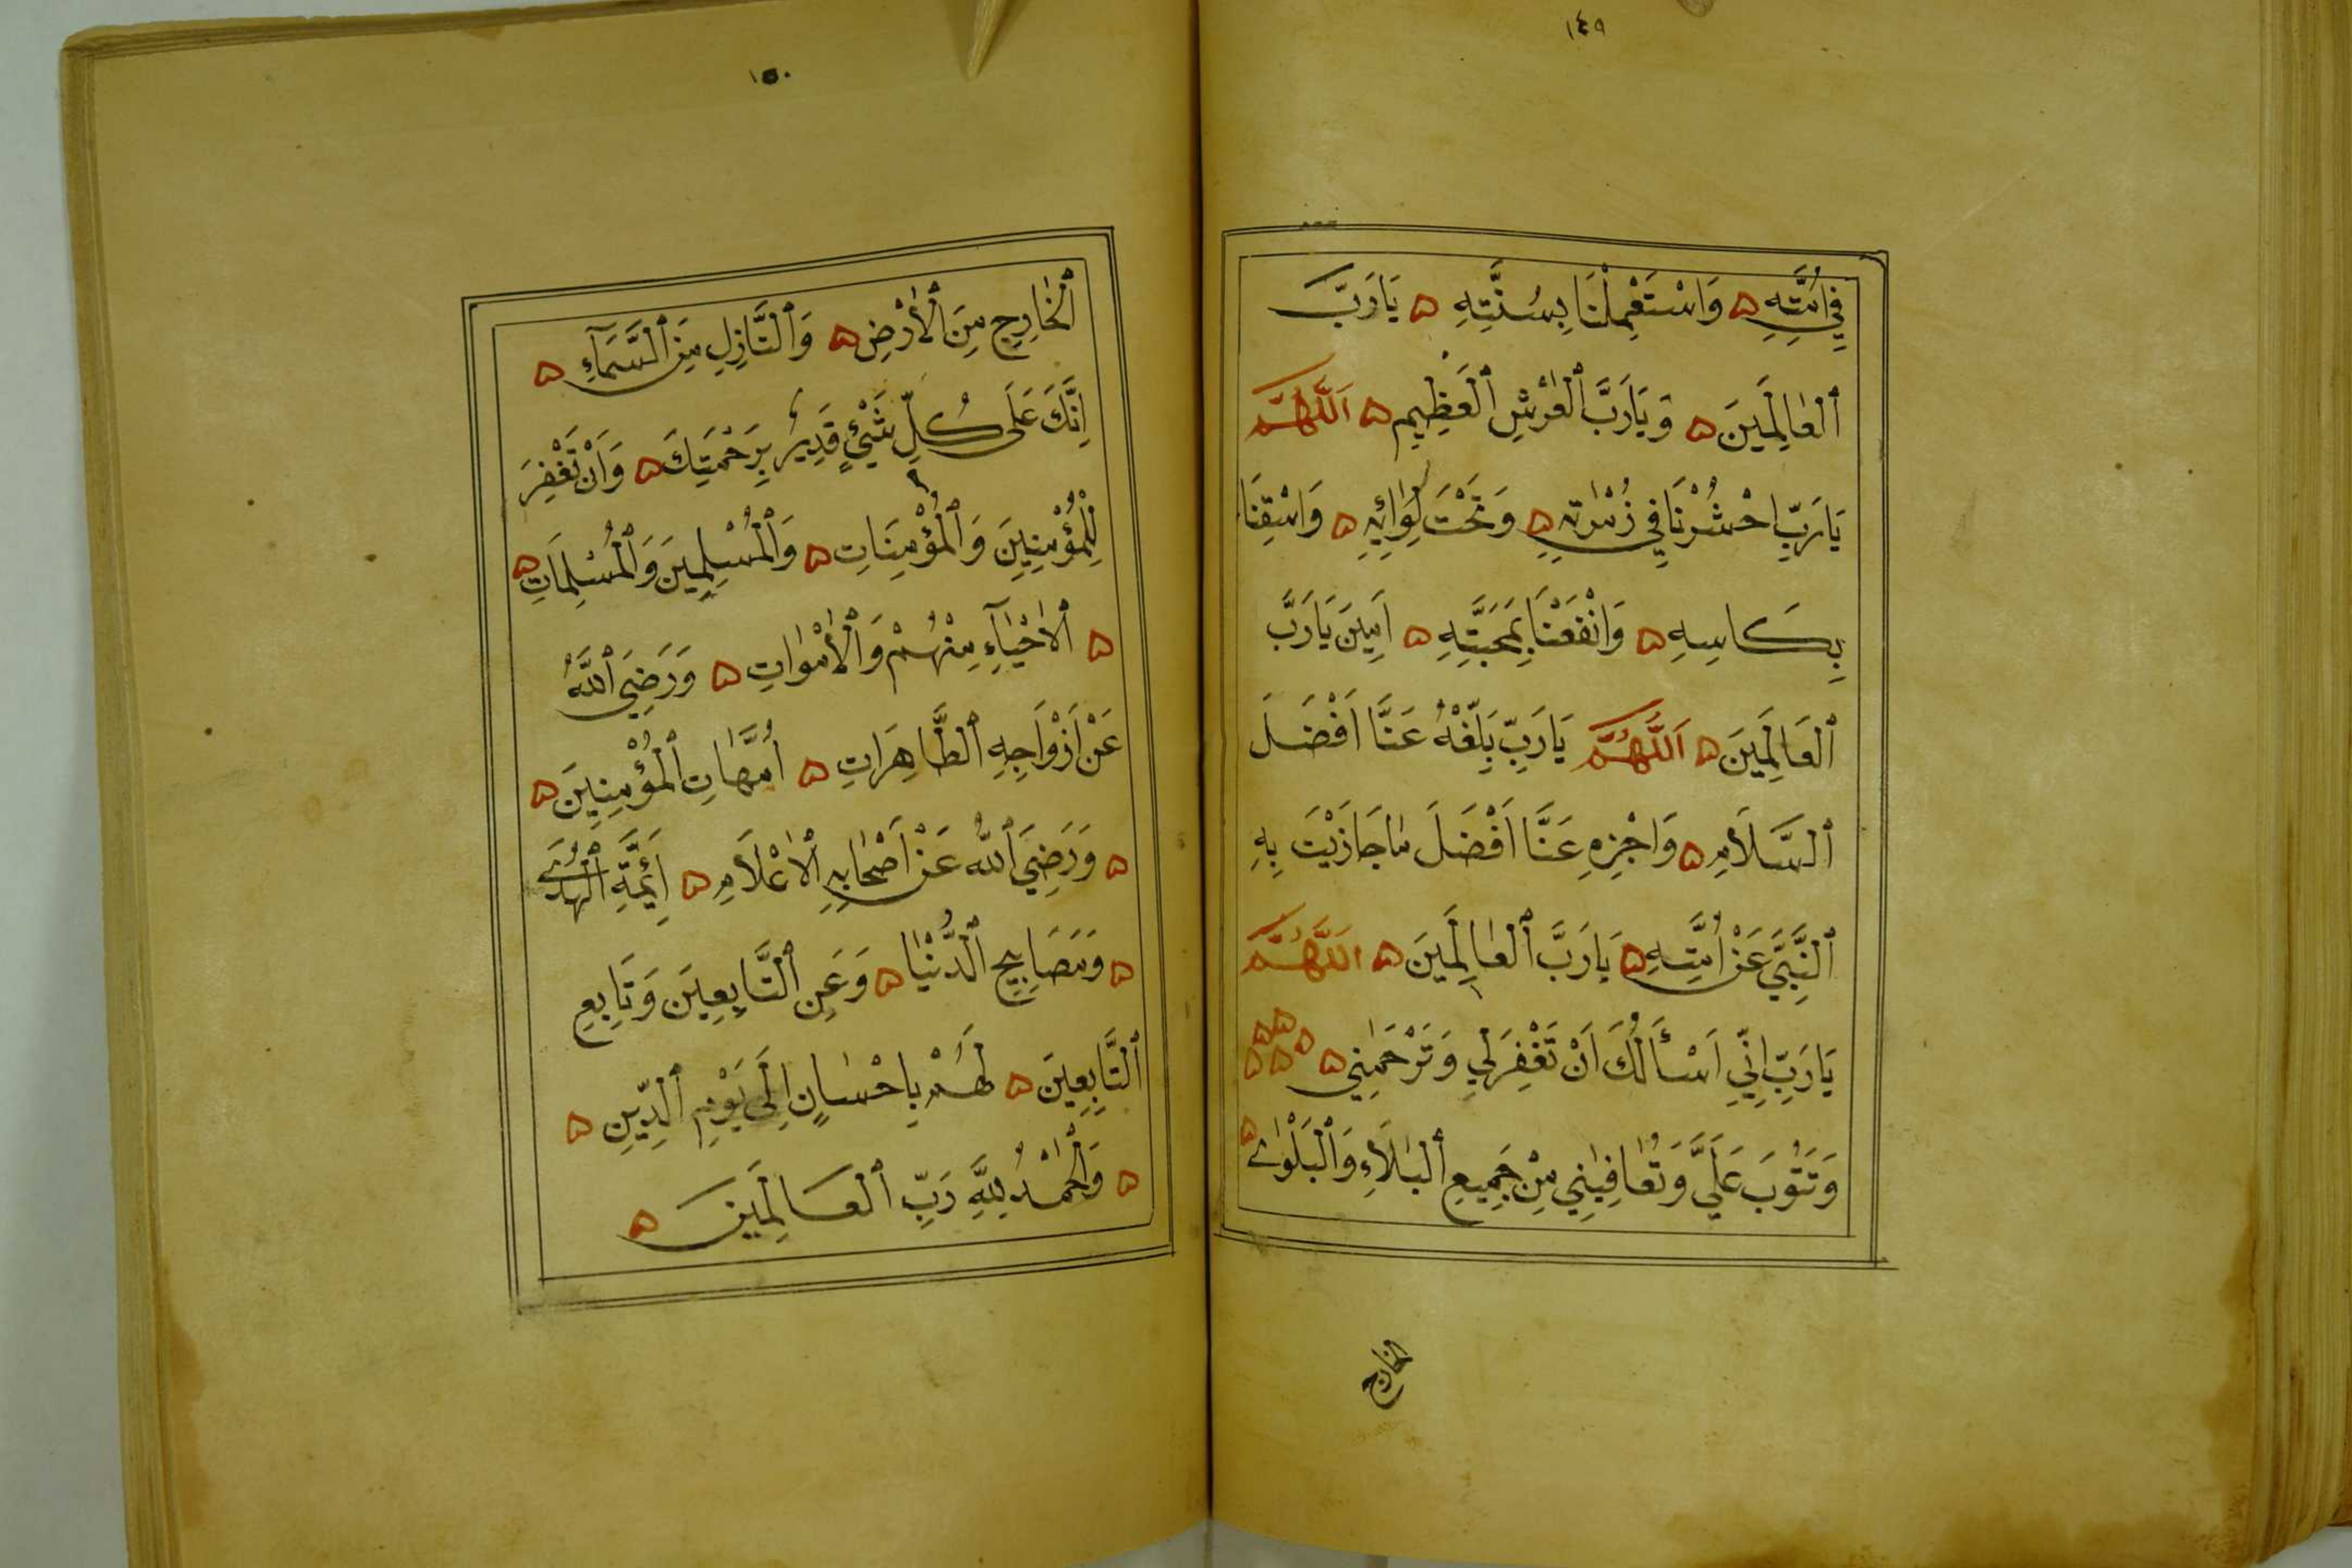 ١٤٩
فِي اُمَّتِهِ ۵ وَاسْتَعْمِلْنَا بِسُنَّتِهِ ۵ يَارَبَّ
ٱلْعَالَمِينَ ۵ وَيَارَبَّ ٱلْعَرْشِ ٱلْعَظِيمِ ۵ اَللّٰهُمَّ
يَارَبِّ احْشُرْنَا فِي زُمْرَتِهِ ۵ وَتَحْتَ لِوَائِهِ ۵ وَاسْقِنَا
بِكَاسِهِ ۵ وَانْفَعْنَا بِمَحَبَّتِهِ ۵ اَمِينَ يَارَبَّ
ٱلْعَالَمِينَ ۵ اَللّٰهُمَّ يَارَبِّ بَلِّغْهُ عَنَّا اَفْضَلَ
ٱلسَّلَامِ ۵ وَاجْزِهِ عَنَّا اَفْضَلَ مَاجَازَيْتَ بِهِ
ٱلنَّبِيَّ عَنْ اُمَّتِهِ ۵ يَارَبَّ ٱلْعَالَمِينَ ۵ اَللّٰهُمَّ
يَارَبِّ اِنِّي اَسْأَلُكَ اَنْ تَغْفِرَلِي وَتَرْحَمَنِي ۵ ۵۵۵۵۵
وَتَتُوبَ عَلَيَّ وَتُعَافِيَنِي مِنْ جَمِيعِ ٱلْبَلَاءِ وَٱلْبَلْوَاءِ ۵
الخارج
١٥٠
ٱلْخَارِجِ مِنَ ٱلْأَرْضِ ۵ وَٱلنَّازِلِ مِنَ ٱلسَّمَآءِ ۵
اِنَّكَ عَلَى كُلِّ شَيْئٍ قَدِيرٌ بِرَحْمَتِكَ ۵ وَاَنْ تَغْفِرَ
لِلْمُؤْمِنِينَ وَٱلْمُؤْمِنَاتِ ۵ وَٱلْمُسْلِمِينَ وَٱلْمُسْلِمَاتِ ۵
۵ ٱلْاَحْيَآءِ مِنْهُمْ وَٱلْأَمْوَاتِ ۵ وَرَضِيَ ٱللّٰهُ
عَنْ اَزْوَاجِهِ ٱلطَّاهِرَاتِ ۵ اُمَّهَاتِ ٱلْمُؤْمِنِينَ ۵
۵ وَرَضِيَ ٱللّٰهُ عَنْ اَصْحَابِهِ ٱلْاَعْلَامِ ۵ اَئِمَّةِ ٱلْهُدَى
۵ وَمَصَابِيحِ ٱلدُّنْيَا ۵ وَعَنِ ٱلتَّابِعِينَ وَتَابِعِ
ٱلتَّابِعِينَ ۵ لَهُمْ بِاِحْسَانٍ اِلَى يَوْمِ ٱلدِّينِ ۵
۵ وَٱلْحَمْدُ لِلّٰهِ رَبِّ ٱلْعَالَمِينَ ۵